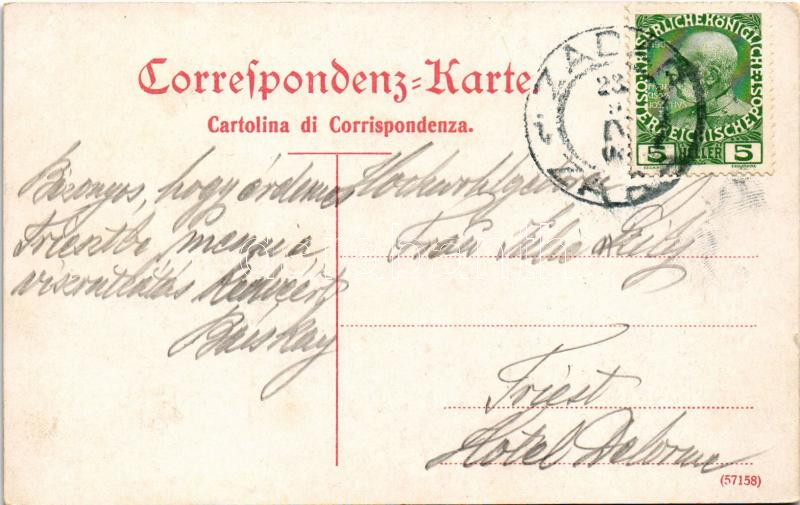 Correspondenz-Karte
Cartolina di Corrispondenza.
ZADAR
ZARA
KAISERLICHE KÖNIGLICHE ÖSTERREICHISCHE POST
5 HELLER 5
Bizonyos, hogy érdemes
Triesztbe menni a
viszontlátás
Hochwohlgeboren
Frau
Triest
Hotel Delorme
(57158)